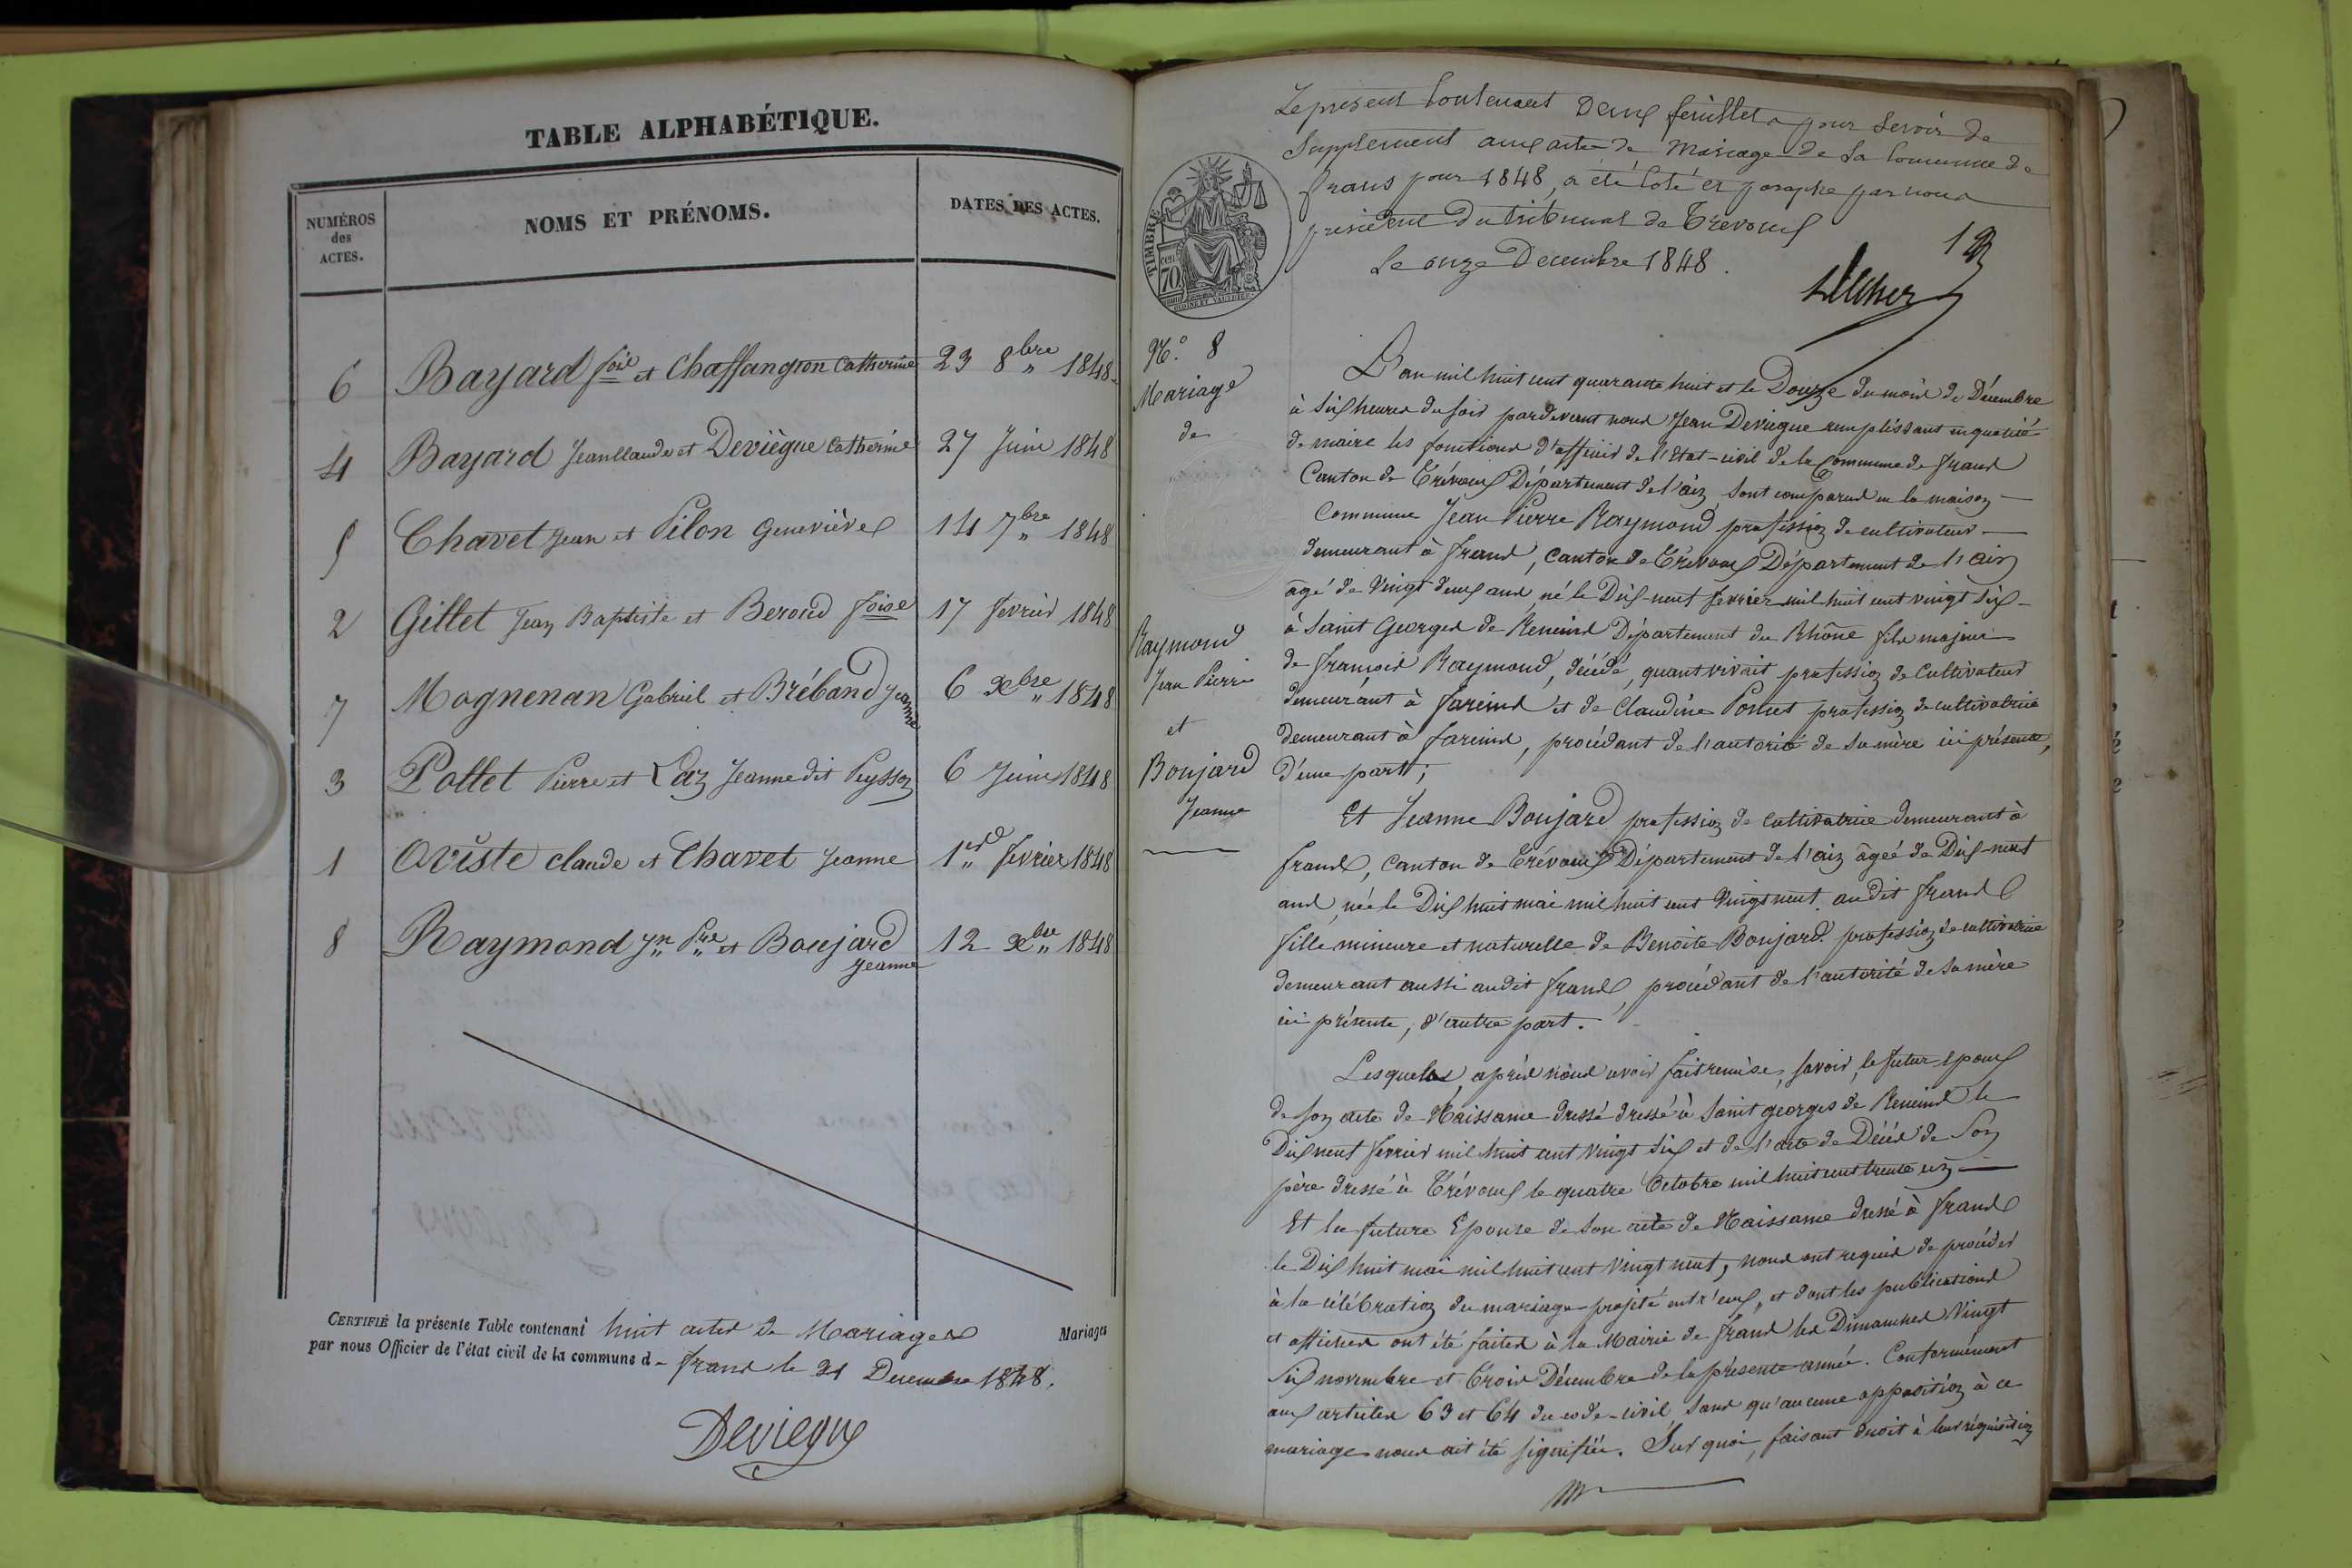 TABLE ALPHABÉTIQUE.
NUMÉROS
des
ACTES.
NOMS ET PRÉNOMS.
DATES DES ACTES.
6 Bayard fois et Chaffangeon Catherine 23 8bre 1848
4 Bayard Jean Claude et Deviègue Catherine 27 Juin 1848
5 Chavet Jean et Pilon Geneviève 14 7bre 1848
2 Gillet Jean Baptiste et Beroud foise 17 fevrier 1848
7 Magnenan Gabriel et Bréband Jeanne 6 Xbre 1848
3 Pollet Pierre et Laz Jeanne dit Peysson 6 Juin 1848
1 Oviste claude et Chavet Jeanne 1er fevrier 1848
8 Raymond Jn Pre et Boujard 12 Xbre 1848
Jeanne
CERTIFIÉ la présente Table contenant huit actes de Mariages Mariages
par nous Officier de l'état civil de la commune d- frans le 31 Decembre 1848.
Deviegue
Le présent Contenant Deux feuillets pour servir de
Supplement aux actes de Mariage de la Commune de
frans pour 1848, a été Coté et paraphé par nous
président du tribunal de Trevoux
Le onze Decembre 1848.
TIMBRE
70
cen.
N.° 8
Mariage
de
Raymond
Jean Pierre
et
Boujard
Jeanne
L'an mil huit cent quarante huit et le Douze du mois de Décembre
à Six heures du soir pardevant nous Jean Deviegue remplissant en qualité
de maire les fonctions d'officier de l'Etat-civil de la Commune de frans
Canton de Trévoux Département de l'ain sont comparus en la maison
Commune Jean Pierre Raymond profession de cultivateur
demeurant à frans, Canton de Trévoux Département de l'ain
âgé de Vingt deux ans, né le Dix-neuf fevrier mil huit cent vingt Six
à Saint Georges de Reneins Département du Rhône fils majeur
de françois Raymond, décédé, quant vivait profession de Cultivateur
demeurant à fareins et de Claudine Poncet profession de cultivatrice
demeurant à fareins, procédant de l'autorité de sa mère ici présente,
d'une part;
Et Jeanne Boujard profession de Cultivatrice demeurant à
frans, Canton de Trévoux Département de l'ain âgée de Dix-neuf
ans, née le Dix huit mai mil huit cent Vingt neuf audit frans
fille mineure et naturelle de Benoite Boujard profession de cultivatrice
demeurant aussi audit frans, procédant de l'autorité de sa mère
ici présente, d'autre part.
Lesquels, après nous avoir fait remise, savoir, le futur Epoux
de son acte de Naissance dressé dressé à Saint georges de Reneins le
Dix neuf fevrier mil huit cent vingt Six et de l'acte de Décès de Son
père dressé à Trévoux le quatre Octobre mil huit cent trente un
Et la future Epouse de Son acte de Naissance dressé à frans
le Dix huit mai mil huit cent Vingt neuf, nous ont requis de procéder
à la célébration du mariage projeté entr'eux, et dont les publications
et affiches ont été faites à la Mairie de frans les Dimanches Vingt
Six novembre et Trois Décembre de la présente année. Conformément
aux articles 63 et 64 du code-civil sans qu'aucune opposition à ce
mariage nous ait été signifiée. Sur quoi, faisant droit à leur réquisition